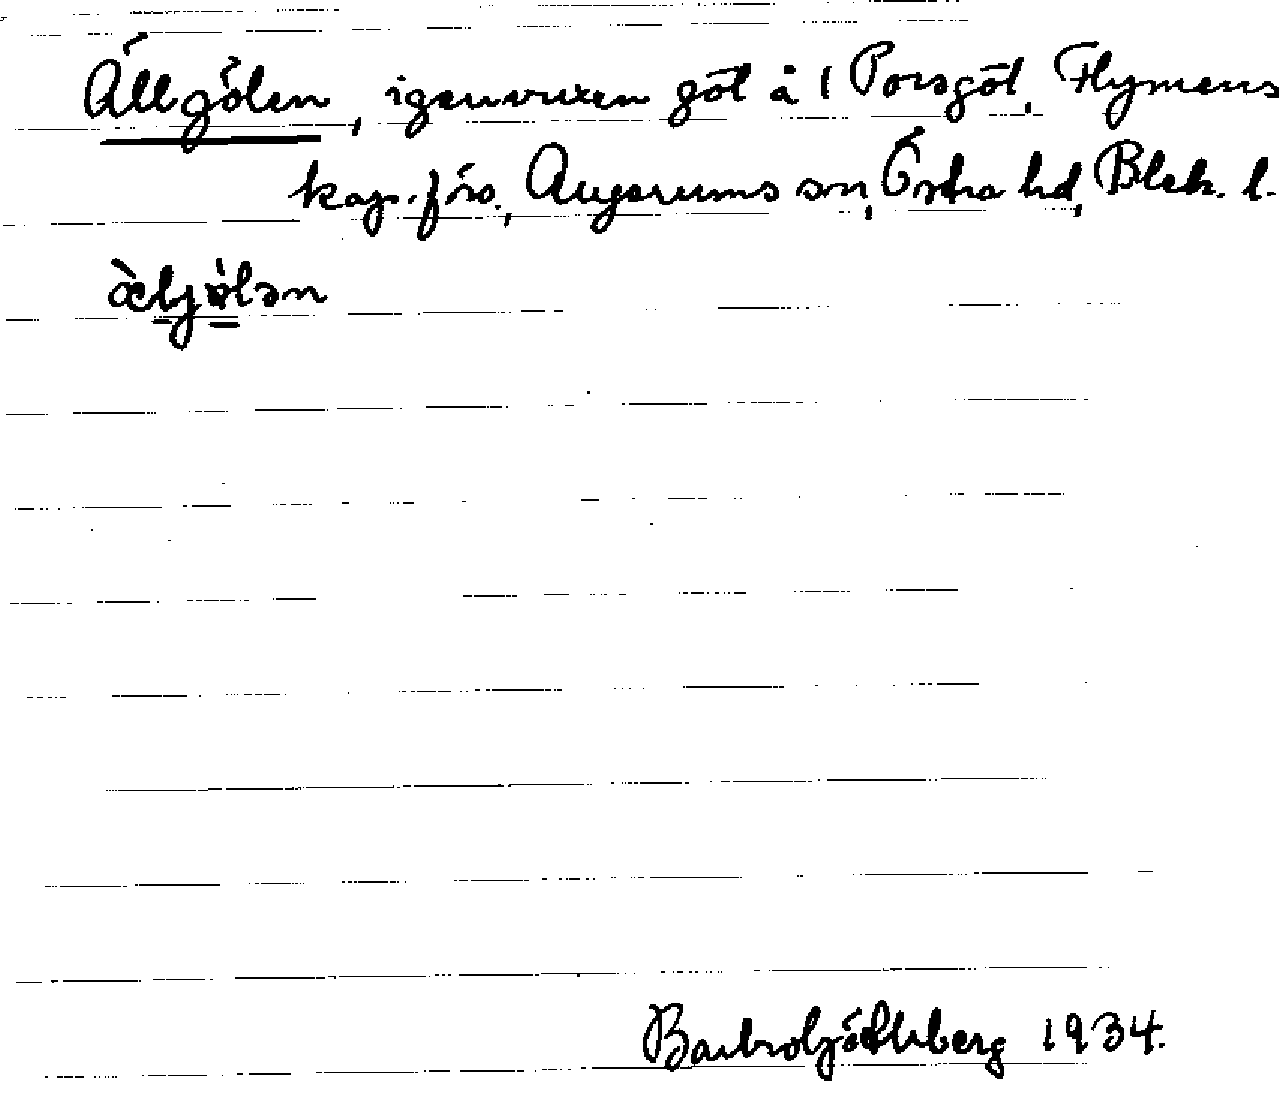 Ällgölen, igenvuxen göl å 1 Porsgöl, Flymens
kap.förs., Augerums sn, Östra hd, Blek. l.
Barbro Söthberg 1934.